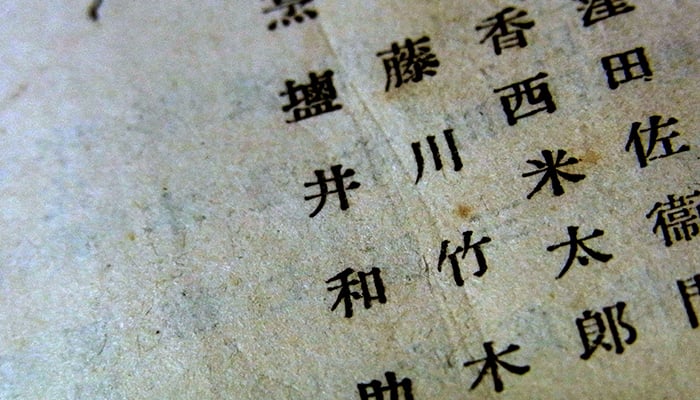 窪田佐衞門
香西米太郎
藤川竹木
塩井和助